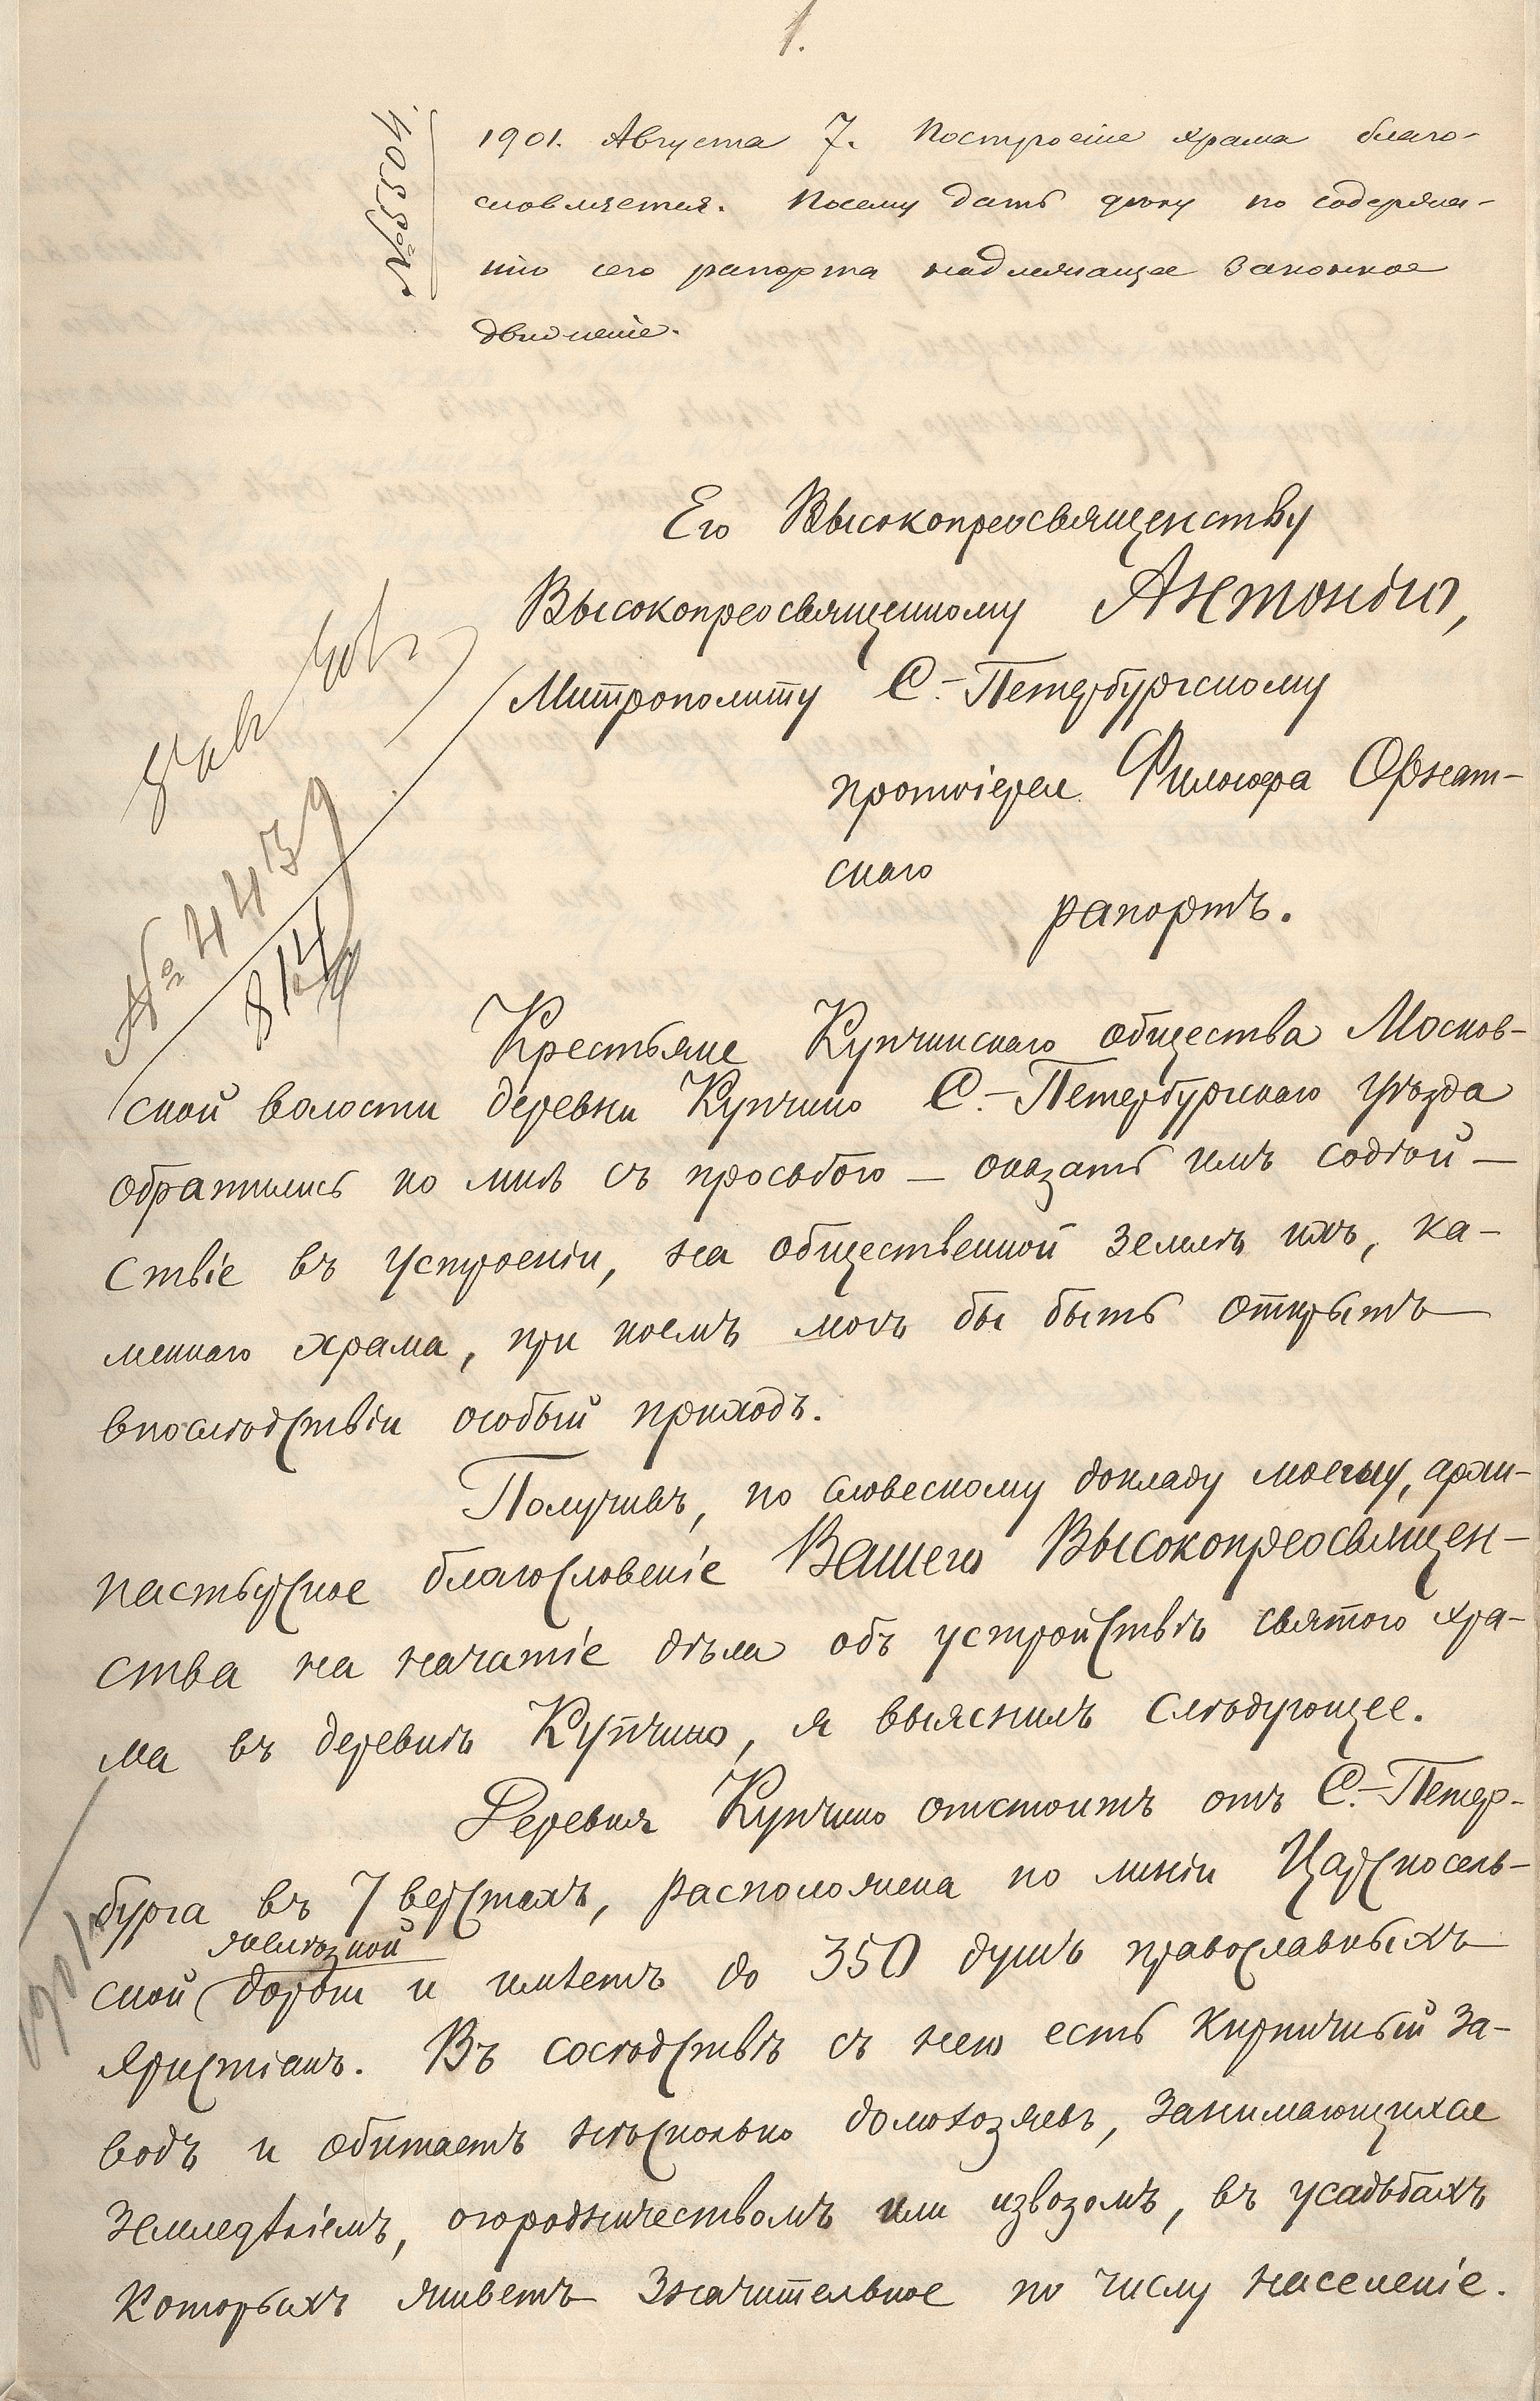 1.
№ 5904.
1901. Августа 7. Построеніе храма благо-
словляется. Посему дать дѣлу по содержа-
нію сего рапорта надлежащее законное
движеніе.
Его Высокопреосвященству
Высокопреосвященному Антонію,
Митрополиту С.-Петербургскому
протоіерея Философа Орнат-
скаго
рапортъ.
№ 4439
Крестьяне Купчинскаго общества Москов-
ской волости деревни Купчино С.-Петербургскаго уѣзда
обратились ко мнѣ съ просьбою — оказать имъ содѣй-
ствіе въ устроеніи, на общественной землѣ ихъ, ка-
меннаго храма, при коемъ могъ бы быть открытъ
впослѣдствіи особый приходъ.
Получивъ, по словесному докладу моему, архи-
пастырское благословеніе Вашего Высокопреосвящен-
ства на начатіе дѣла объ устройствѣ святого хра-
ма въ деревнѣ Купчино, я выяснилъ слѣдующее.
Деревня Купчино отстоитъ отъ С.-Петер-
бурга въ 7 верстахъ, расположена по линіи Царскосель-
желѣзной
ской дороги и имѣетъ до 350 душъ православныхъ
христіанъ. Въ сосѣдствѣ съ нею есть кирпичный за-
водъ и обитаетъ нѣсколько домохозяевъ, занимающихся
земледѣліемъ, огородничествомъ или извозомъ, въ усадьбахъ
которыхъ живетъ значительное по числу населеніе.